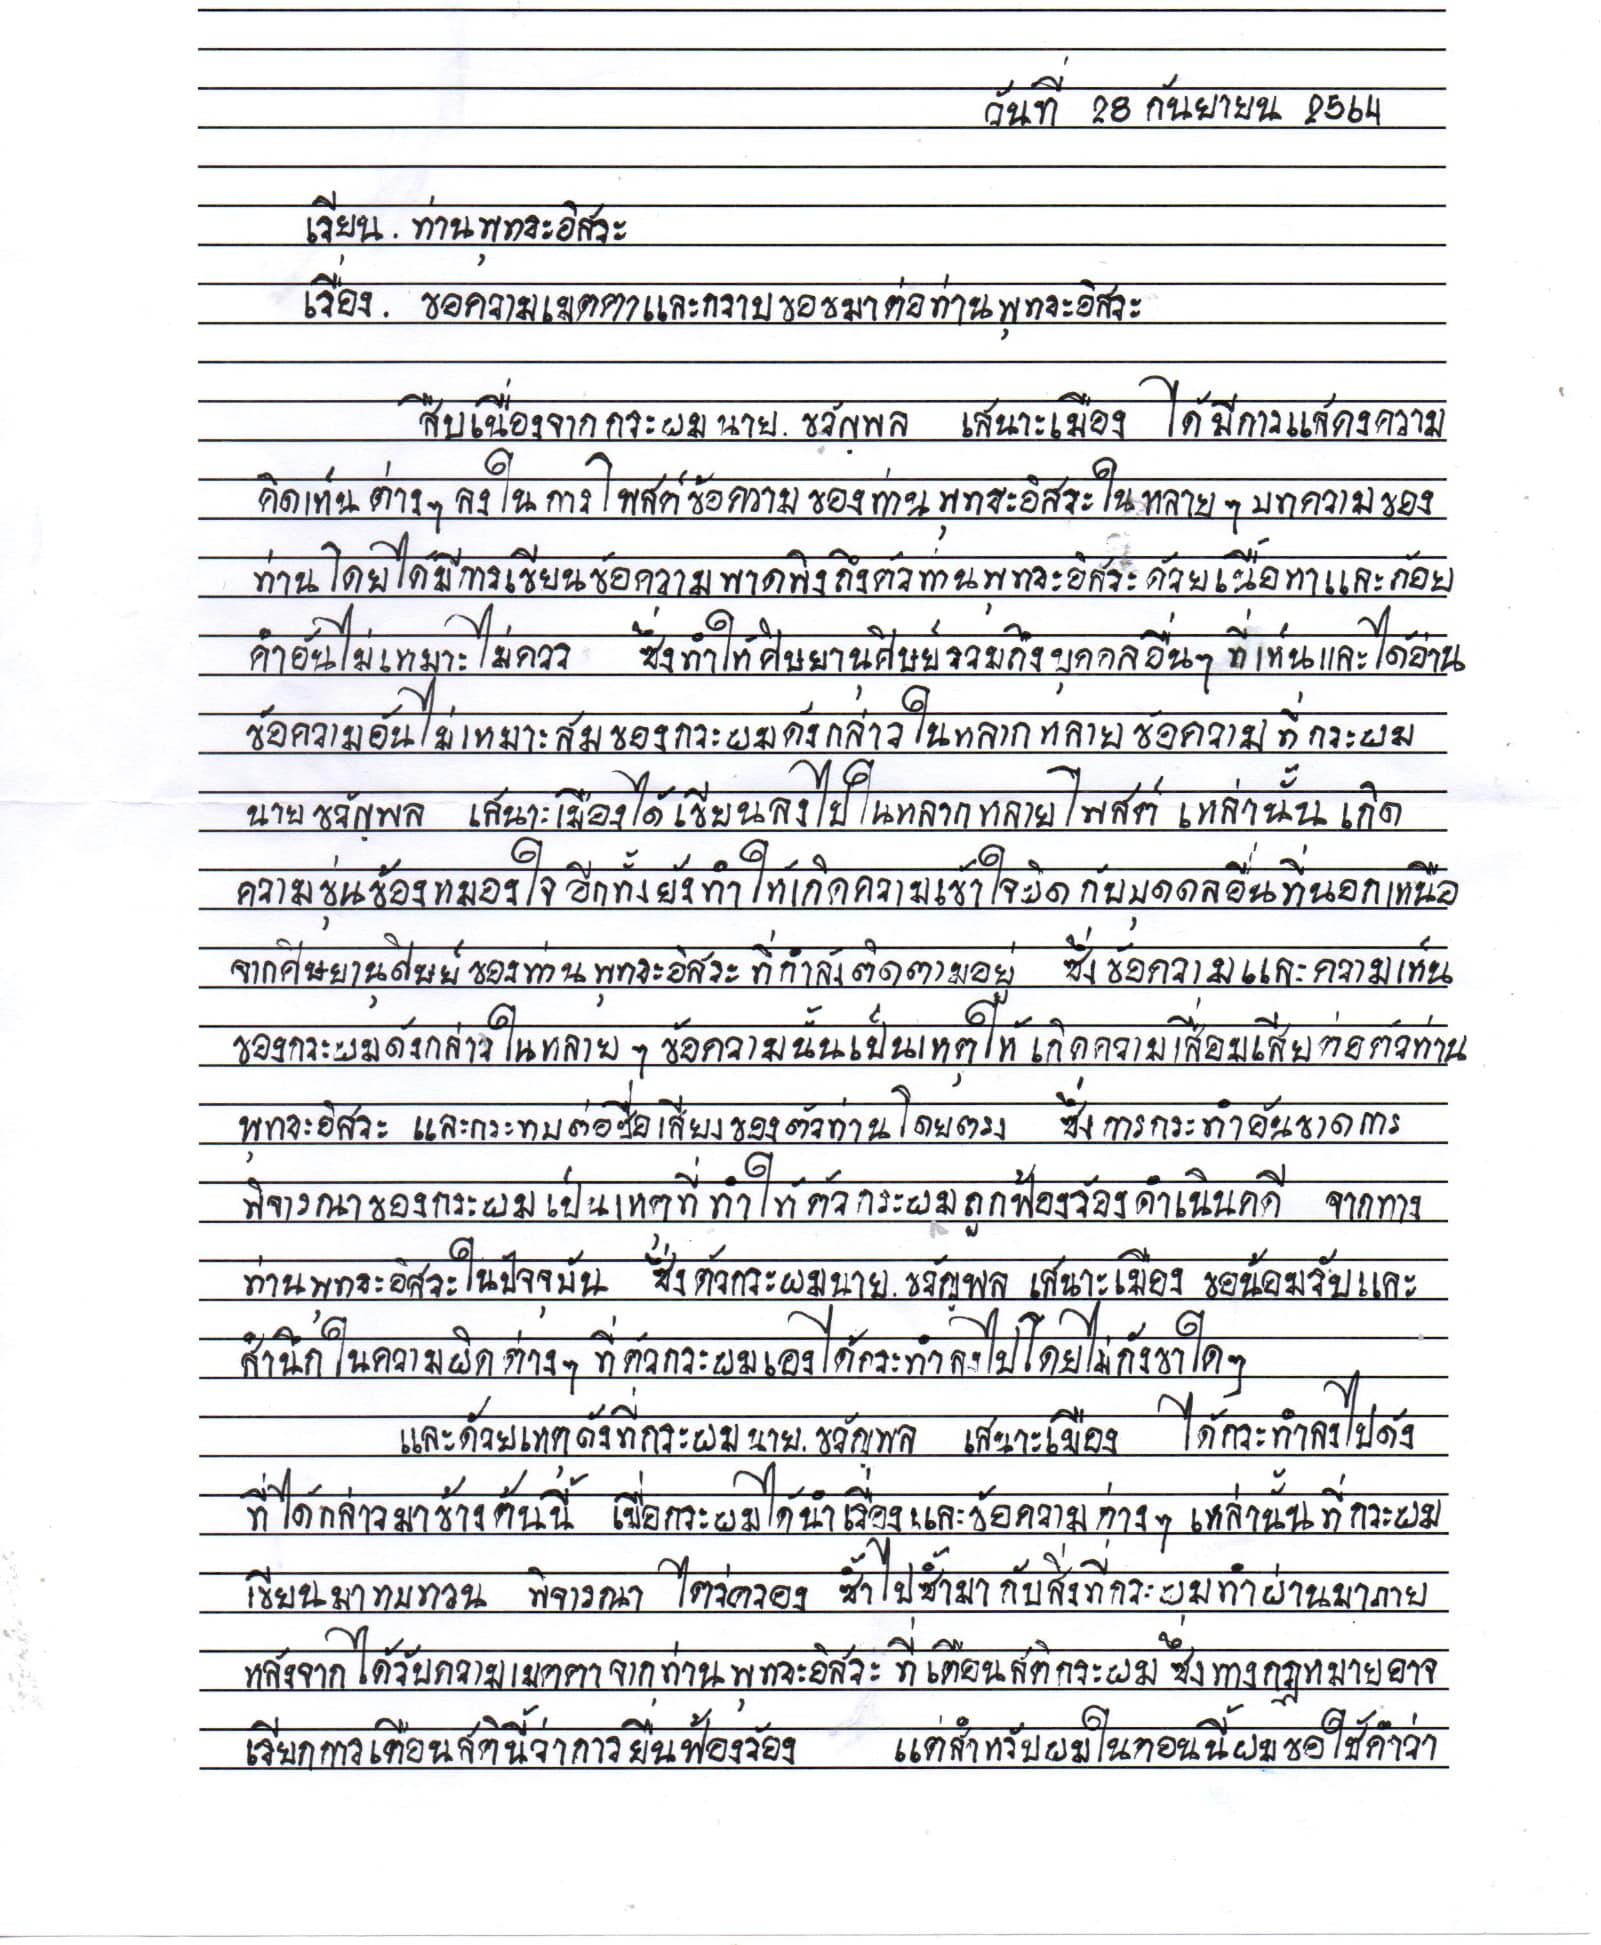 วันที่ 28 กันยายน 2564
เรียน. ท่านพุทธะอิสระ
เรื่อง. ขอความเมตตาและกราบขอขมาต่อท่านพุทธะอิสระ
สืบเนื่องจากกระผมนาย. ชวัญพล เสนาะเมือง ได้มีการแสดงความ
คิดเห็นต่างๆ ลงในการโพสต์ข้อความของท่านพุทธะอิสระในหลายๆ บทความของ
ท่านโดยได้มีการเขียนข้อความพาดพิงถึงตัวท่านพุทธะอิสระด้วยเนื้อหาและถ้อย
คำอันไม่เหมาะไม่ควร ซึ่งทำให้ศิษยานุศิษย์รวมถึงบุคคลอื่นๆ ที่เห็นและได้อ่าน
ข้อความอันไม่เหมาะสมของกระผมดังกล่าวในหลากหลายข้อความที่กระผม
นายชวัญพล เสนาะเมืองได้เขียนลงไปในหลากหลายโพสต์ เหล่านั้น เกิด
ความขุ่นข้องหมองใจ อีกทั้งยังทำให้เกิดความเข้าใจผิดกับบุคคลอื่นที่นอกเหนือ
จากศิษยานุศิษย์ของท่านพุทธะอิสระที่กำลังติดตามอยู่ ซึ่งข้อความและความเห็น
ของกระผมดังกล่าวในหลายๆ ข้อความนั้นเป็นเหตุให้เกิดความเสื่อมเสียต่อตัวท่าน
พุทธะอิสระ และกระทบต่อชื่อเสียงของตัวท่านโดยตรง ซึ่งการกระทำอันขาดการ
พิจารณาของกระผมเป็นเหตุที่ทำให้ตัวกระผมถูกฟ้องร้องดำเนินคดี จากทาง
ท่านพุทธะอิสระในปัจจุบัน ซึ่งตัวกระผมนาย. ชวัญพล เสนาะเมือง ขอน้อมรับและ
สำนึกในความผิดต่างๆ ที่ตัวกระผมเองได้กระทำลงไปโดยไม่กังขาใดๆ
และด้วยเหตุดังที่กระผมนาย. ชวัญพล เสนาะเมือง ได้กระทำลงไปดัง
ที่ได้กล่าวมาข้างต้นนี้ เมื่อกระผมได้นำเรื่องและข้อความต่างๆ เหล่านั้นที่กระผม
เขียนมาทบทวน พิจารณา ไตร่ตรอง ซ้ำไปซ้ำมา กับสิ่งที่กระผมทำผ่านมาภาย
หลังจากได้รับความเมตตาจากท่านพุทธะอิสระที่เตือนสติกระผม ซึ่งทางกฎหมายอาจ
เรียกการเตือนสตินี้ว่าการยื่นฟ้องร้อง แต่สำหรับผมในตอนนี้ผมขอใช้คำว่า